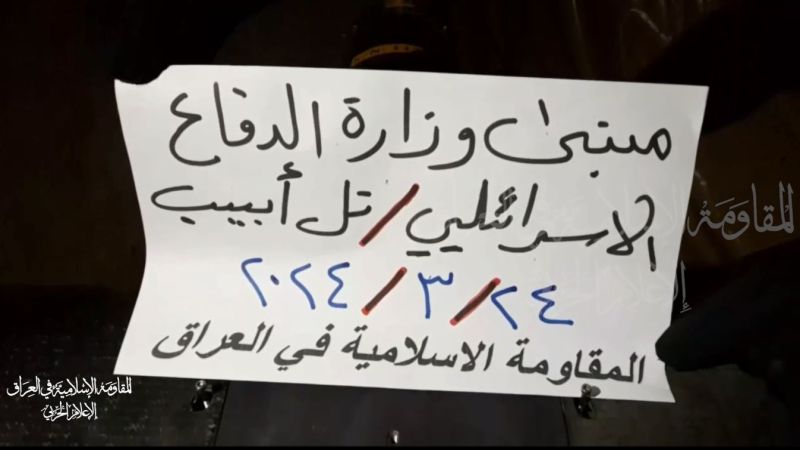 مبنى وزارة الدفاع
الاسرائيلي / تل أبيب
٢٤ / ٣ / ٢٠٢٤
المقاومة الاسلامية في العراق
المقاومة الإسلامية في العراق
الإعلام الحربي
المقاومة الإسلامية
الإعلام الحربي